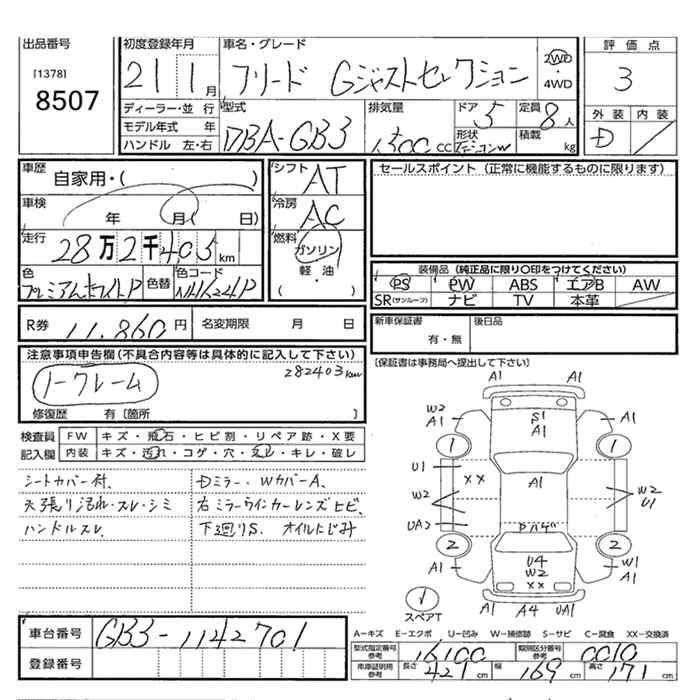 出品番号
[1378]
8507
初度登録年月
21 1 月
車名・グレード
フリード Gジャストセレクション
2WD
・
4WD
評価点
3
外装 内装
D
ディーラー・並 行
モデル年式 年
ハンドル 左・右
型式
DBA-GB3
排気量
1500 CC
ドア
5
形状
定員
8 人
積載
kg
車歴
自家用・( )
車検
年 月( 日)
走行
28万2千405 km
色
プレミアムホワイトP
色替
色コード
NH624P
シフト
AT
冷房
AC
燃料
ガソリン
軽・油
( )
セールスポイント (正常に機能するものに限ります)
装備品 (純正品に限り○印をつけてください)
PS PW ABS エアB AW
SR(サンルーフ) ナビ TV 本革
R券 11,860 円 名変期限 月 日
新車保証書
有・無
後日品
[保証書は事務局へ提出して下さい]
注意事項申告欄(不具合内容等は具体的に記入して下さい)
282403km
ノークレーム
修復歴 有〔箇所 〕
検査員 FW キズ・飛石・ヒビ割・リペア跡・X要
記入欄 内装 キズ・汚れ・コゲ・穴・スレ・キレ・破レ
シートカバー付、
天張り汚れ・スレ・シミ
ハンドルスレ
Dミラー、WカバーA、
右ミラーウインカーレンズヒビ、
下廻りS、オイルにじみ
A1 A1
W2
A1
S1
A1
A1
1 1
U1
XX
A1
W2
W2
U1
UA2
Rバゲ
2 2
A1
U4
W2
XX
W1
A1
A1 A4 UA1
スペアT
車台番号
GB3-1142701
登録番号
A-キズ E-エクボ U-凹み W-補修跡 S-サビ C-腐食 XX-交換済
型式指定番号
参考
16100
類別区分番号
参考
0010
車庫証明用
参考
長さ 421 cm 幅 169 cm 高さ 171 cm